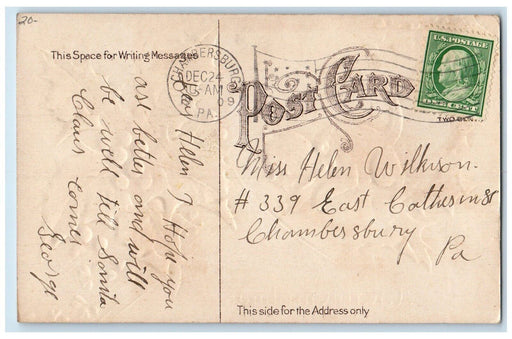 20-
This Space for Writing Messages
Dear Helen I Hope you
are better and will
be well till Santa
Claus Comes
George
CHAMBERSBURG
DEC 24
AM
09
PA.
POST CARD
U.S. POSTAGE
ONE CENT
Miss Helen Wilkison
# 339 East Catherin St
Chambersbury
Pa
This side for the Address only